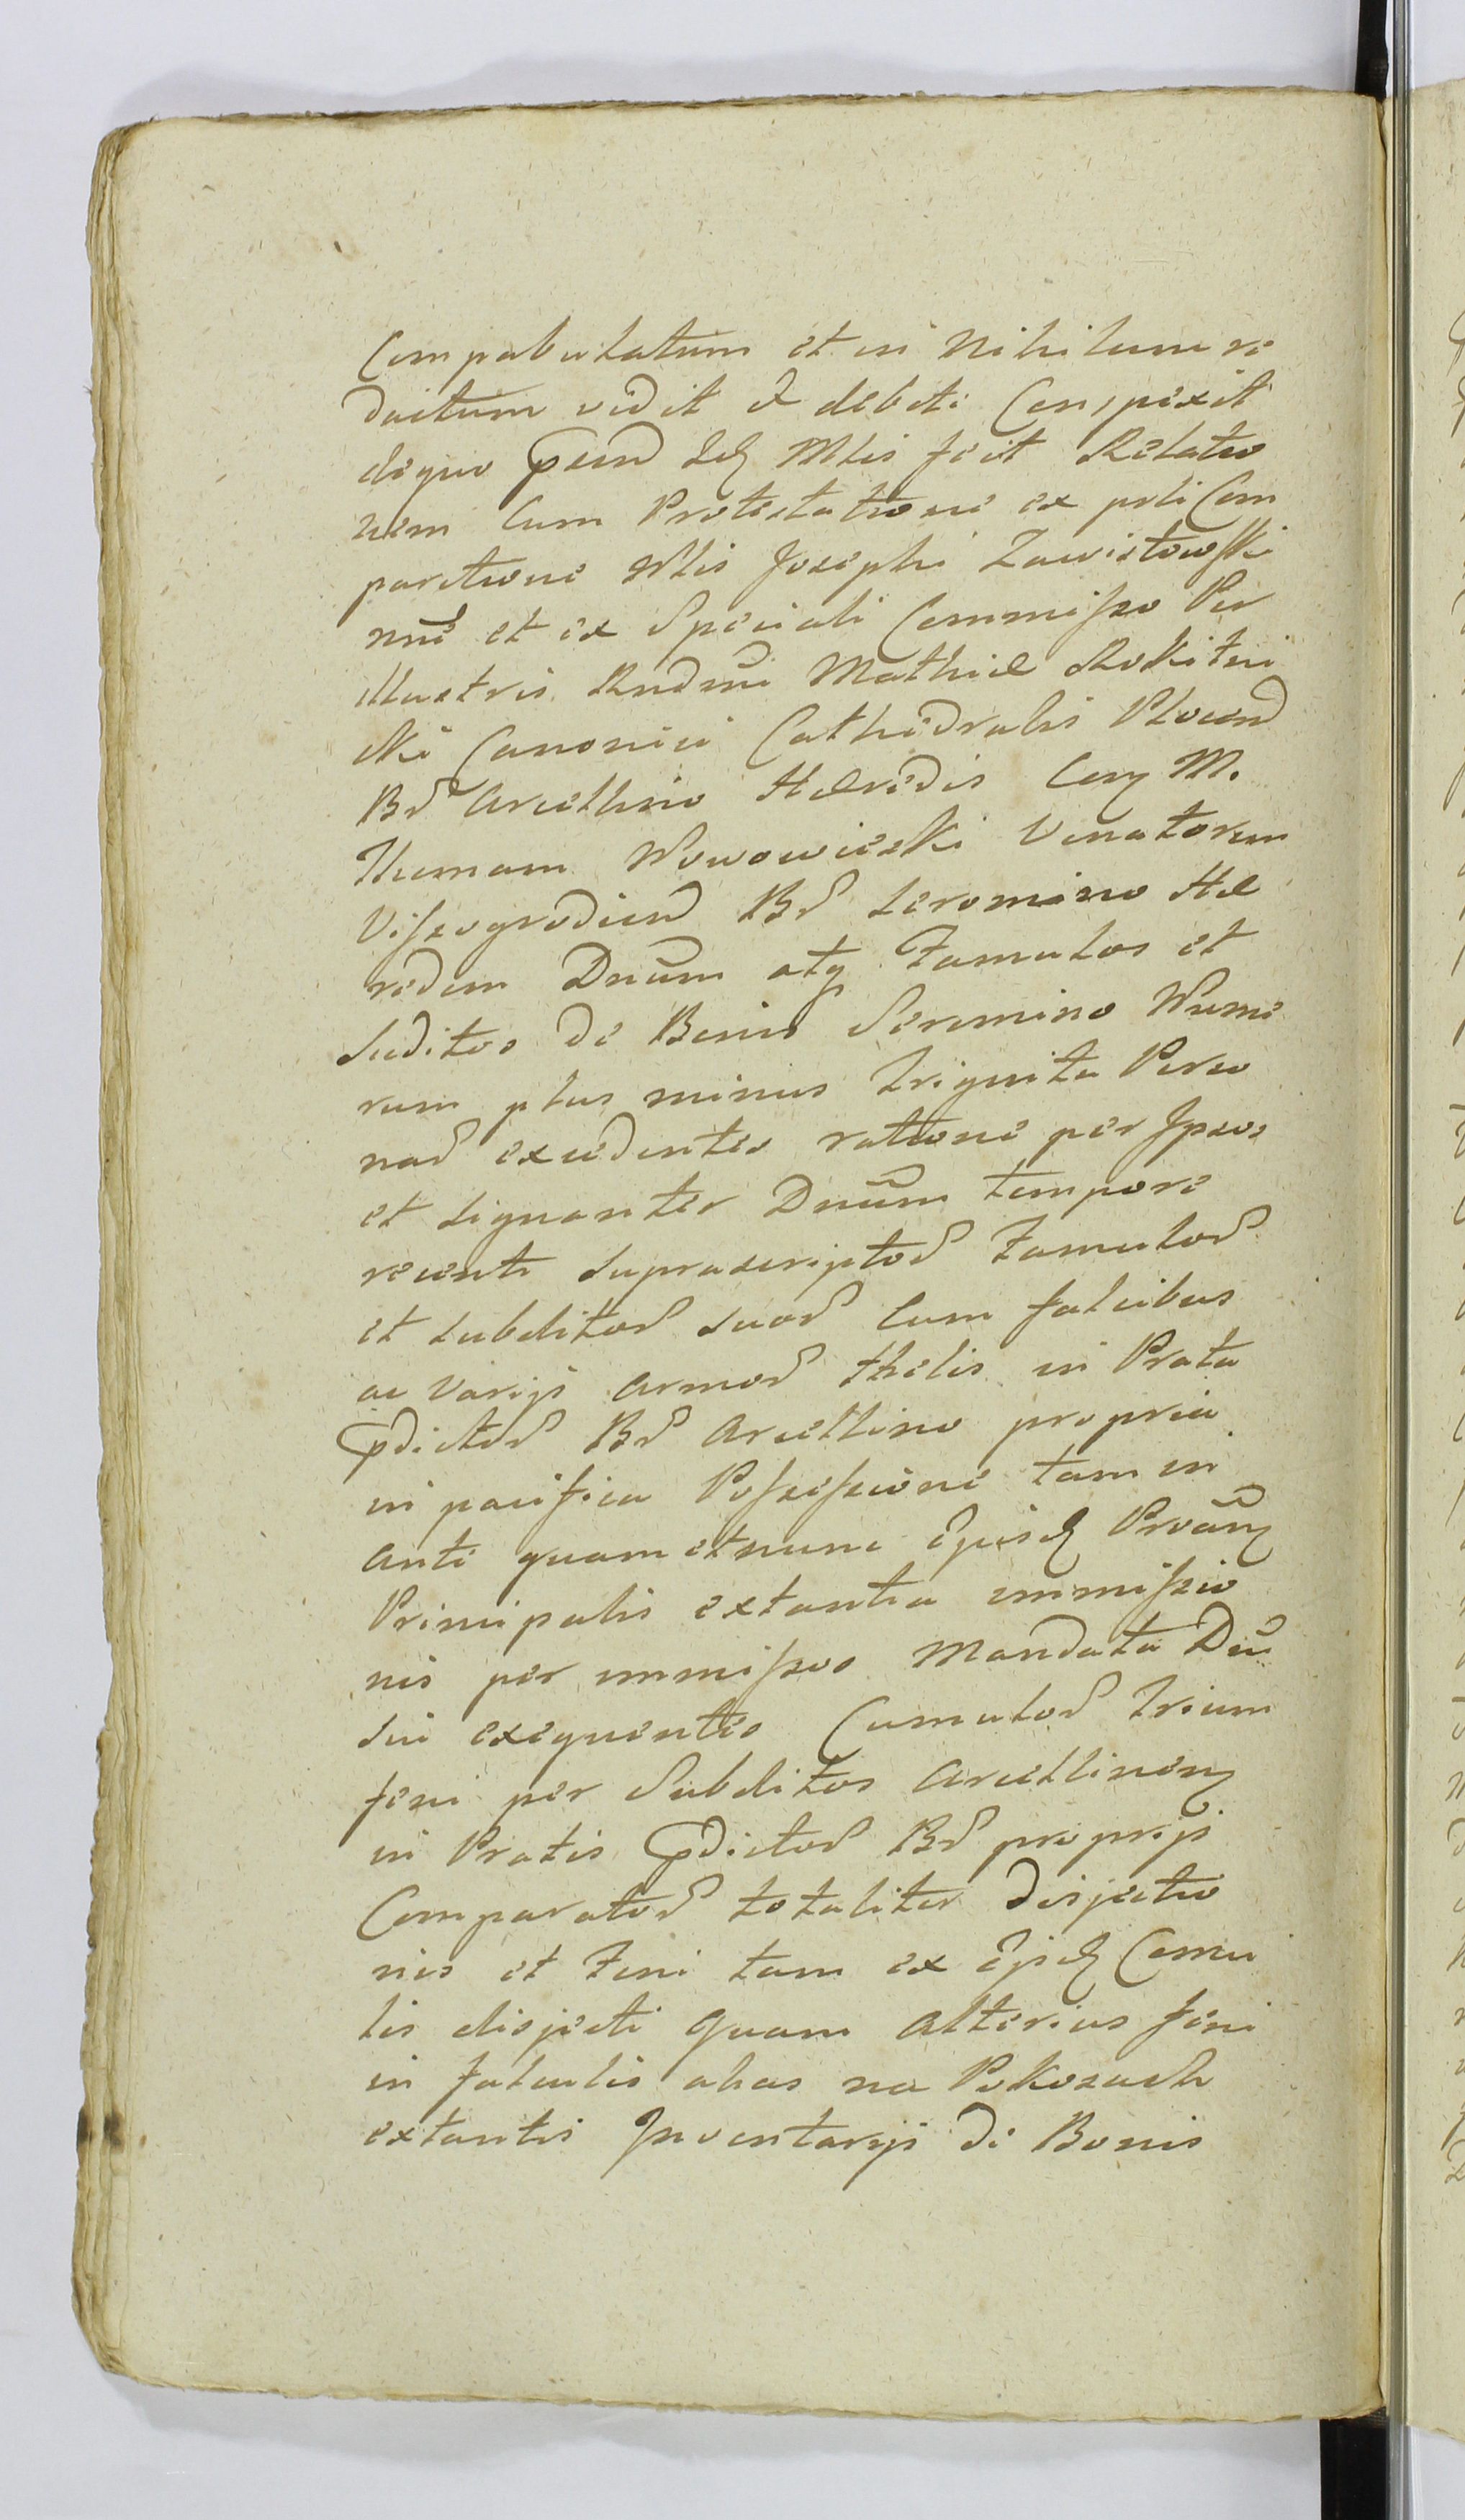 Compabulatum et in Nihilum re
dactum vidit et debite Conspexit
deque Mtis fecit Relatio
nem Cum Protestatione ex psli Com
paritione Nblis Josephi Zawistowski
nne et ex Speciali Commisso Per
illustris Rndmi Mathiæ Rokitni
cki Canonici Cathedralis Plocen
Br Arcellino Hæredis Con M.
Thomam Nowowieski Venatorem
Vissogrodien Br Seromino Hæ
redem Dnum atq Famulos et
Suditos de Bonis Seromino Nume
rum plus minus triginta Perso
nar excedentes ratione per Ipsos
et signanter Dnum tempore
recenti suprascriptor Famulor
et subditor suor Cum falcibus
ac varijs armor thelis in Prata
pdictor Br Arcellino propria
in pacifica Possessione tam in
ante quam et nunc Proän
Principalis extantia immissio
nis per immissos Mandata Dni
sui exequentes Cumulor trium
feni per Subditos Arcellinen
in Pratis pdictor Br proprijs
Comparator totaliter disjectio
nis et Feni tam ex Cumu
lis disjecti quam alterius feni
in falculis alias na Pokosach
extantis Inventarijs de Bonis